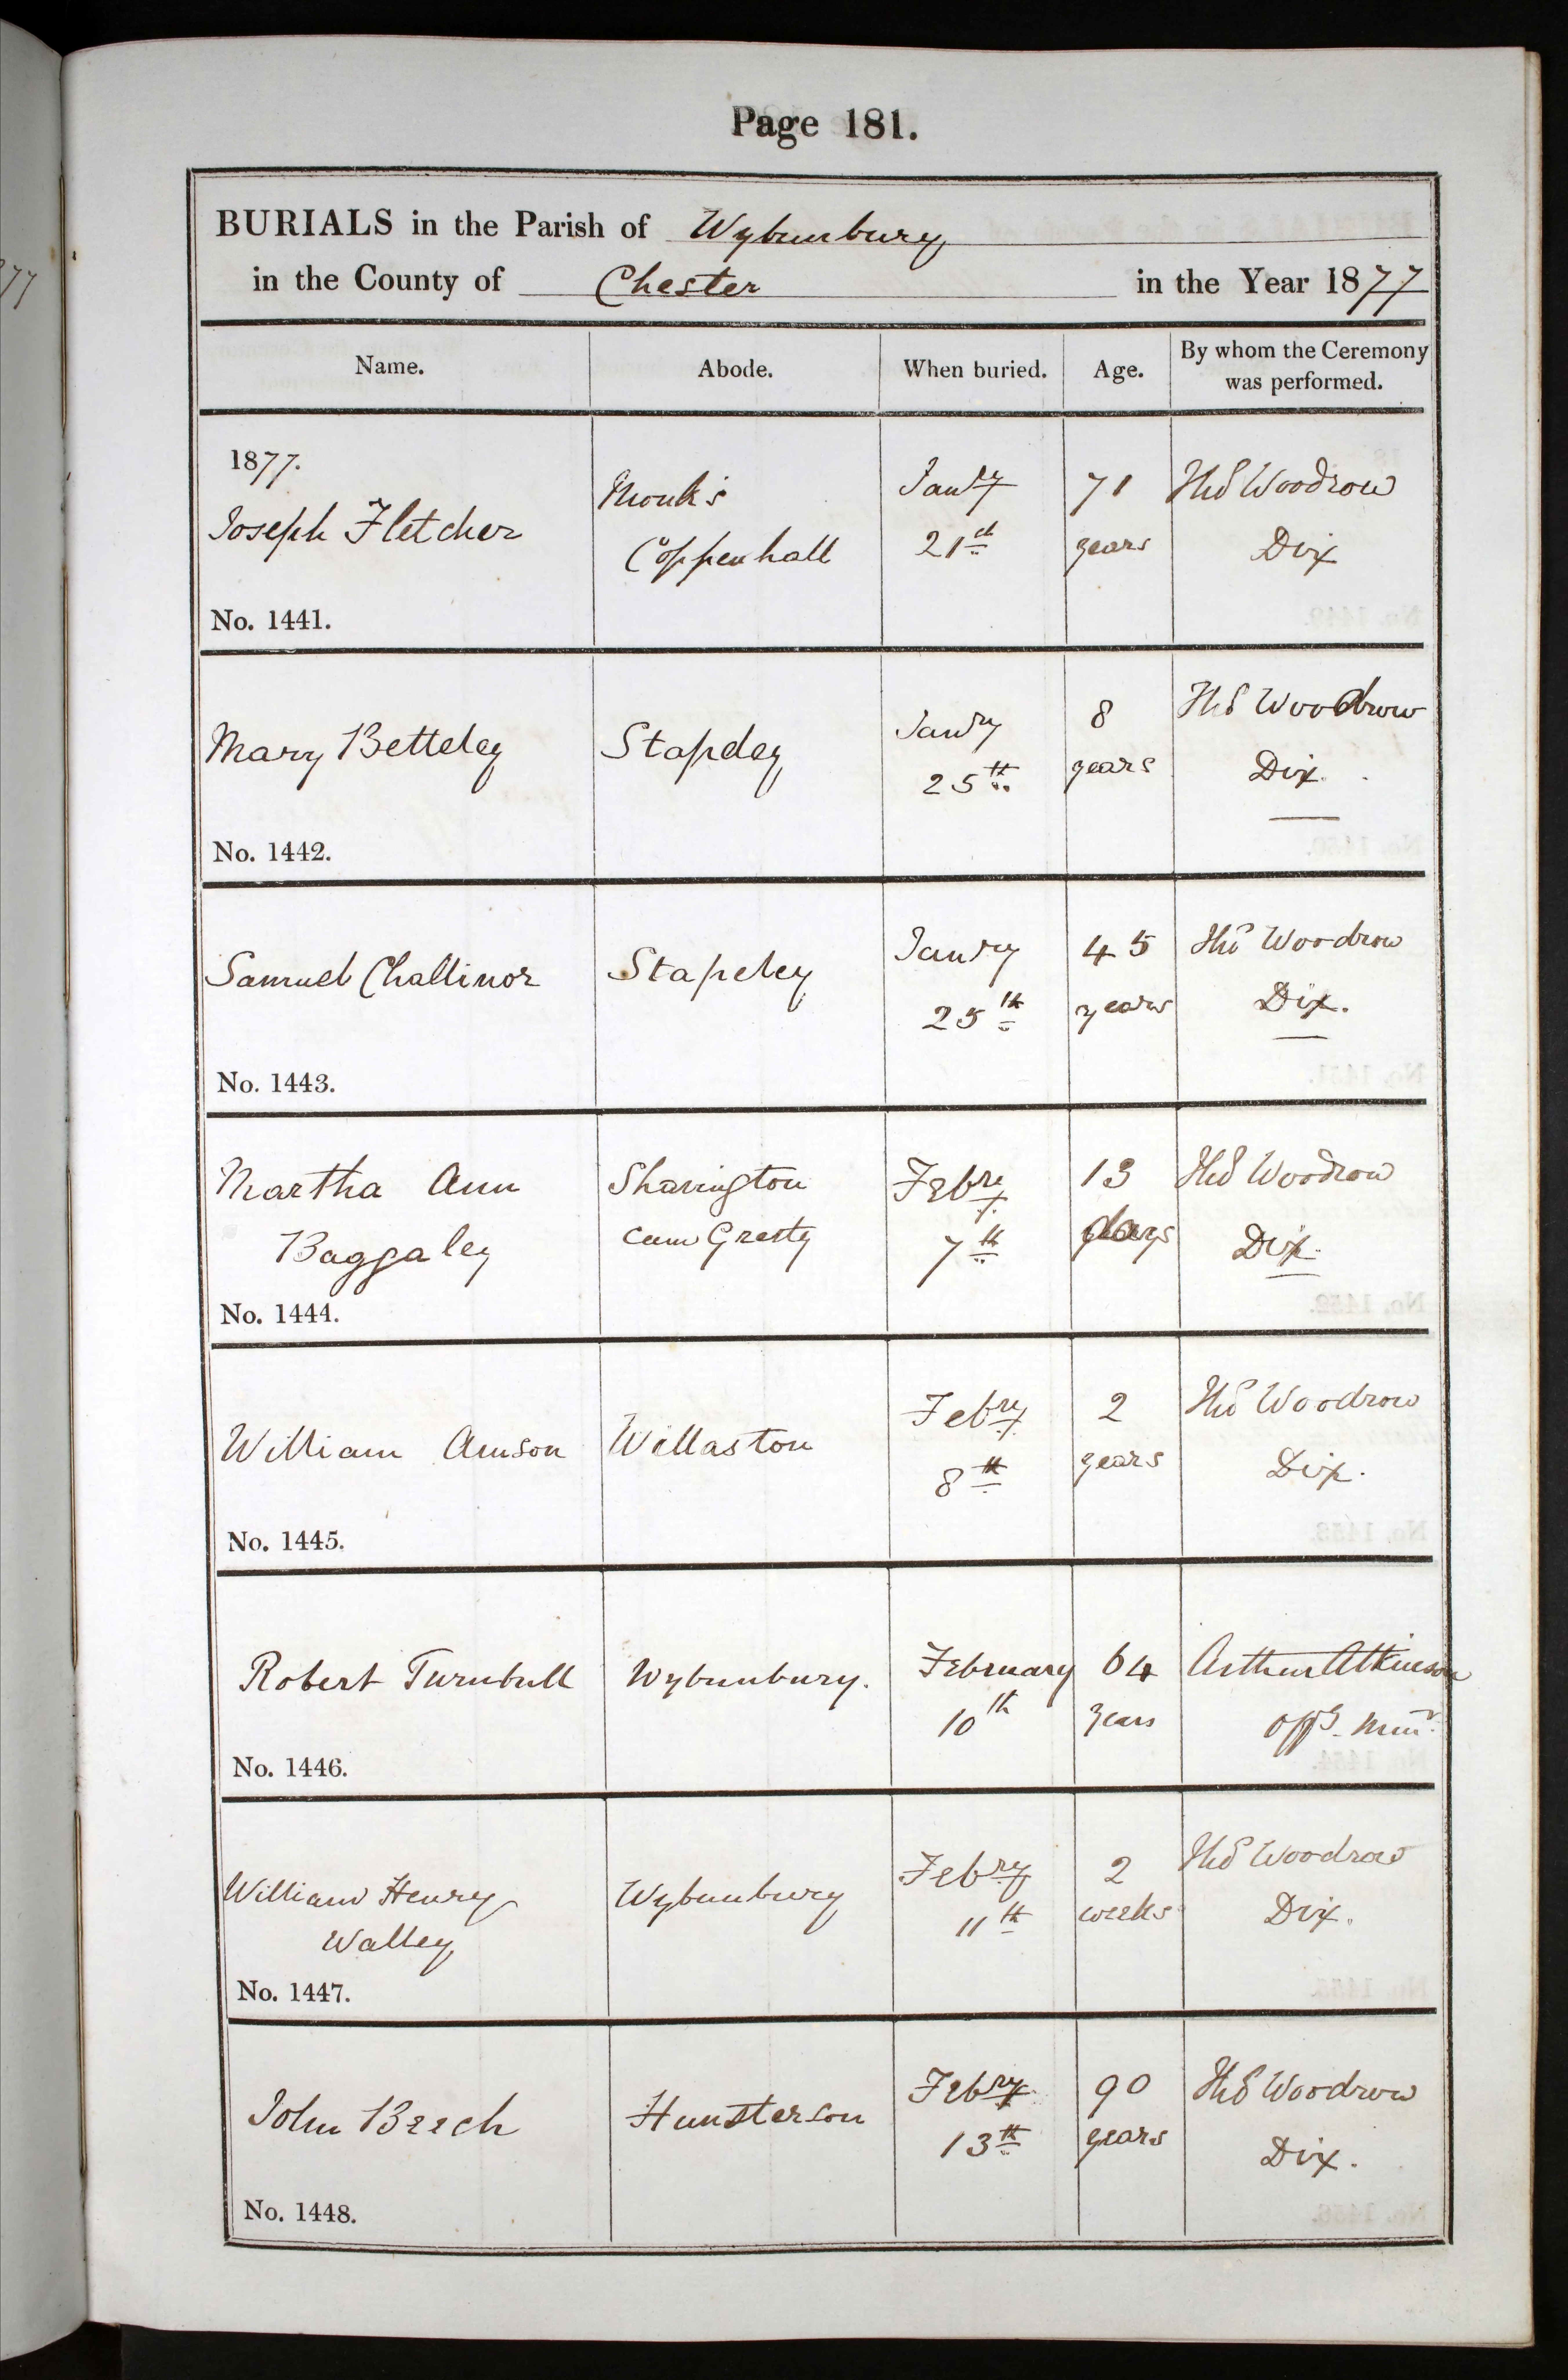 Page 181.
BURIALS in the Parish of Wybunbury
in the County of Chester in the Year 1877
Name. Abode. When buried. Age. By whom the Ceremony was performed.
1877.
Joseph Fletcher
Monk's
Coppenhall
Janry
21th
71
years
Thos Woodrow
Dix
No. 1441.
Mary Betteley
Stapeley
Janry
25th
8
years
Thos Woodrow
Dix.
No. 1442.
Samuel Challinor
Stapeley
Janry
25th
45
years
Thos Woodrow
Dix.
No. 1443.
Martha Ann
Baggaley
Shavington
cum Gresty
Febry
7th
13
days
Thos Woodrow
Dix.
No. 1444.
William Amson
Willaston
Febry
8th
2
years
Thos Woodrow
Dix.
No. 1445.
Robert Turnbull
Wybunbury.
February
10th
64
years
Arthur Atkinson
Offg. Minr.
No. 1446.
William Henry
Walley
Wybunbury
Febry
11th
2
weeks
Thos Woodrow
Dix.
No. 1447.
John Beech
Hunsterson
Febry
13th
90
years
Thos Woodrow
Dix.
No. 1448.